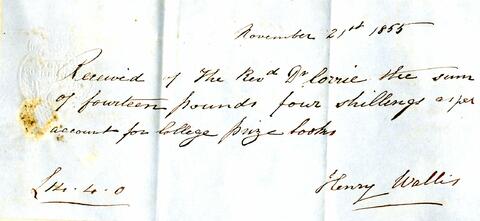 November 21st 1855
Received of The Revd Dr Corrie the sum
of fourteen pounds four shillings as per
account for College prize books
£14.4.0
Henry Wallis